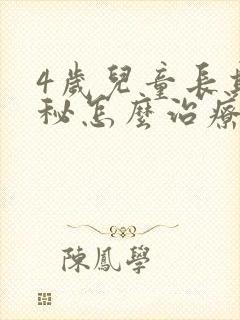 4歲兒童長
秘怎麼治療
陳鳳學